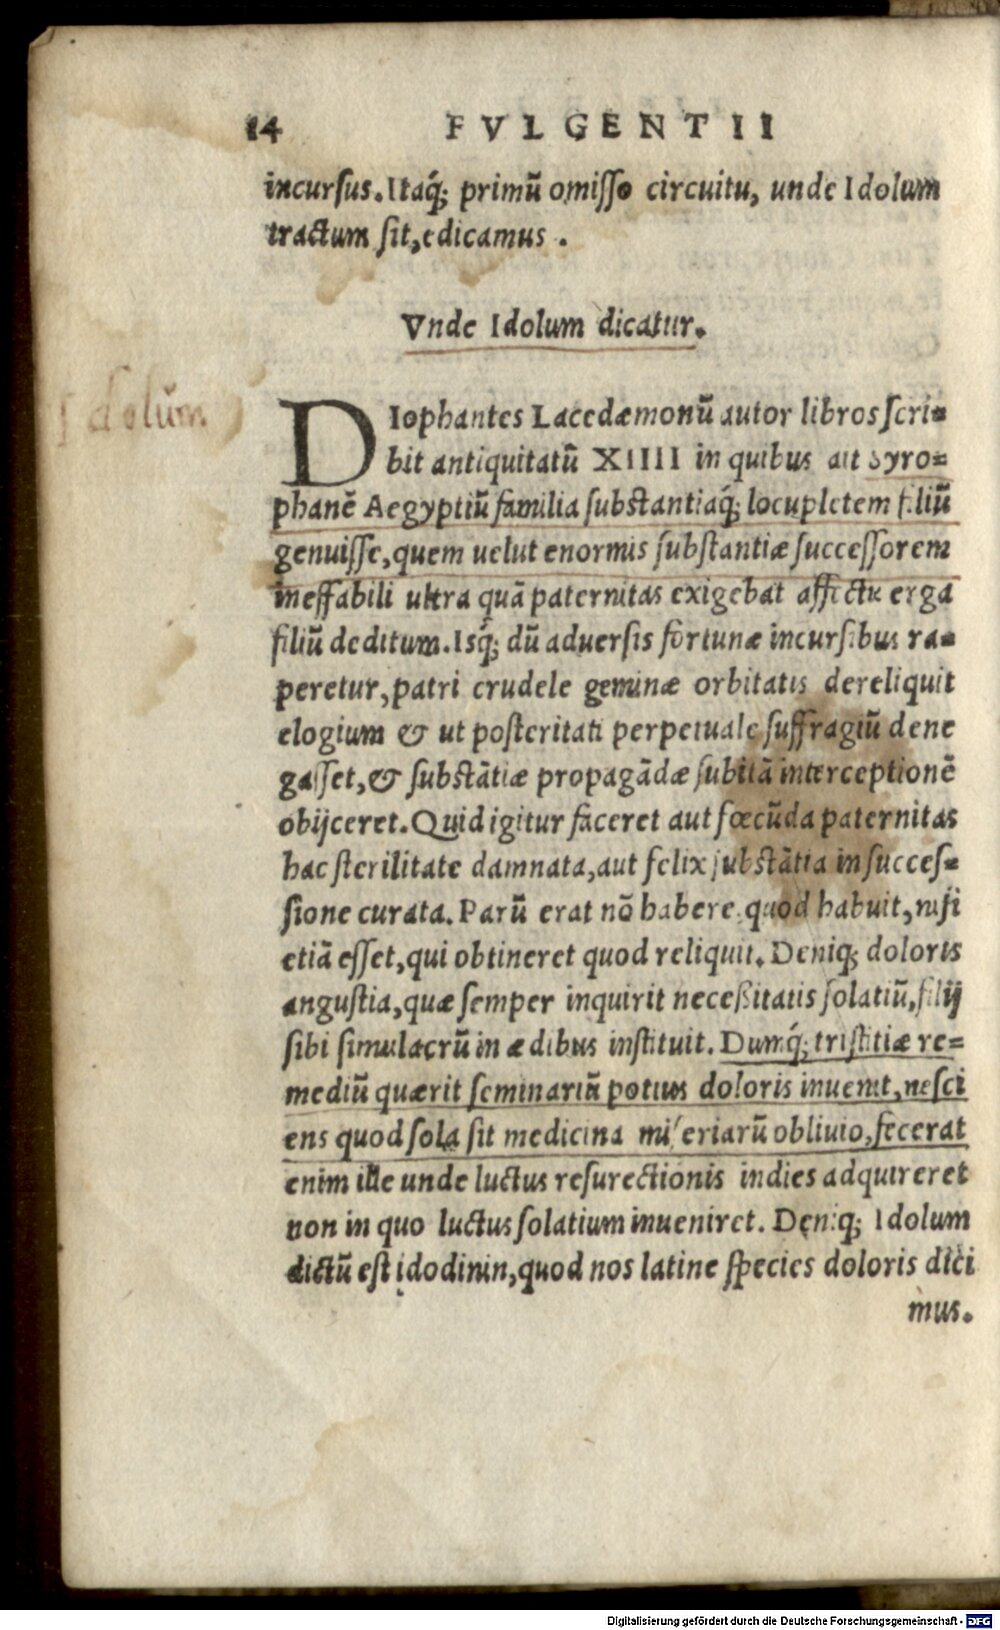 14 FVLGENTII
incursus. Itaq́; primũ omisso circuitu, unde Idolum
tractum sit, edicamus.
Vnde Idolum dicatur.
Idolũm
DIophantes Lacedæmonũ autor libros scri=
bit antiquitatũ XIIII in quibus ait Syro=
phanẽ Aegyptiũ familia substantiaq́; locupletem filiũ
genuisse, quem uelut enormis substantiæ successorem
ineffabili ultra quã paternitas exigebat affectu erga
filiũ deditum. Isq́; dũ aduersis fortunæ incursibus ra=
peretur, patri crudele geminæ orbitatis dereliquit
elogium & ut posteritati perpetuale suffragiũ dene
gasset, & substãtiæ propagãdæ subitã interceptionẽ
obijceret. Quid igitur faceret aut fœcũda paternitas
hac sterilitate damnata, aut felix substãtia in succes=
sione curata. Parũ erat nõ habere quod habuit, nisi
etiã esset, qui obtineret quod reliquit. Deniq; doloris
angustia, quæ semper inquirit necessitatis solatiũ, filij
sibi simulacrũ in ædibus instituit. Dumq́; tristitiæ re=
mediũ quærit seminariũ potius doloris inuenit, nesci
ens quod sola sit medicina miseriarũ obliuio, fecerat
enim ille unde luctus resurectionis indies adquireret
non in quo luctus solatium inueniret. Deniq; Idolum
dictũ est idodinin, quod nos latine species doloris dici
mus.
Digitalisierung gefördert durch die Deutsche Forschungsgemeinschaft - DFG